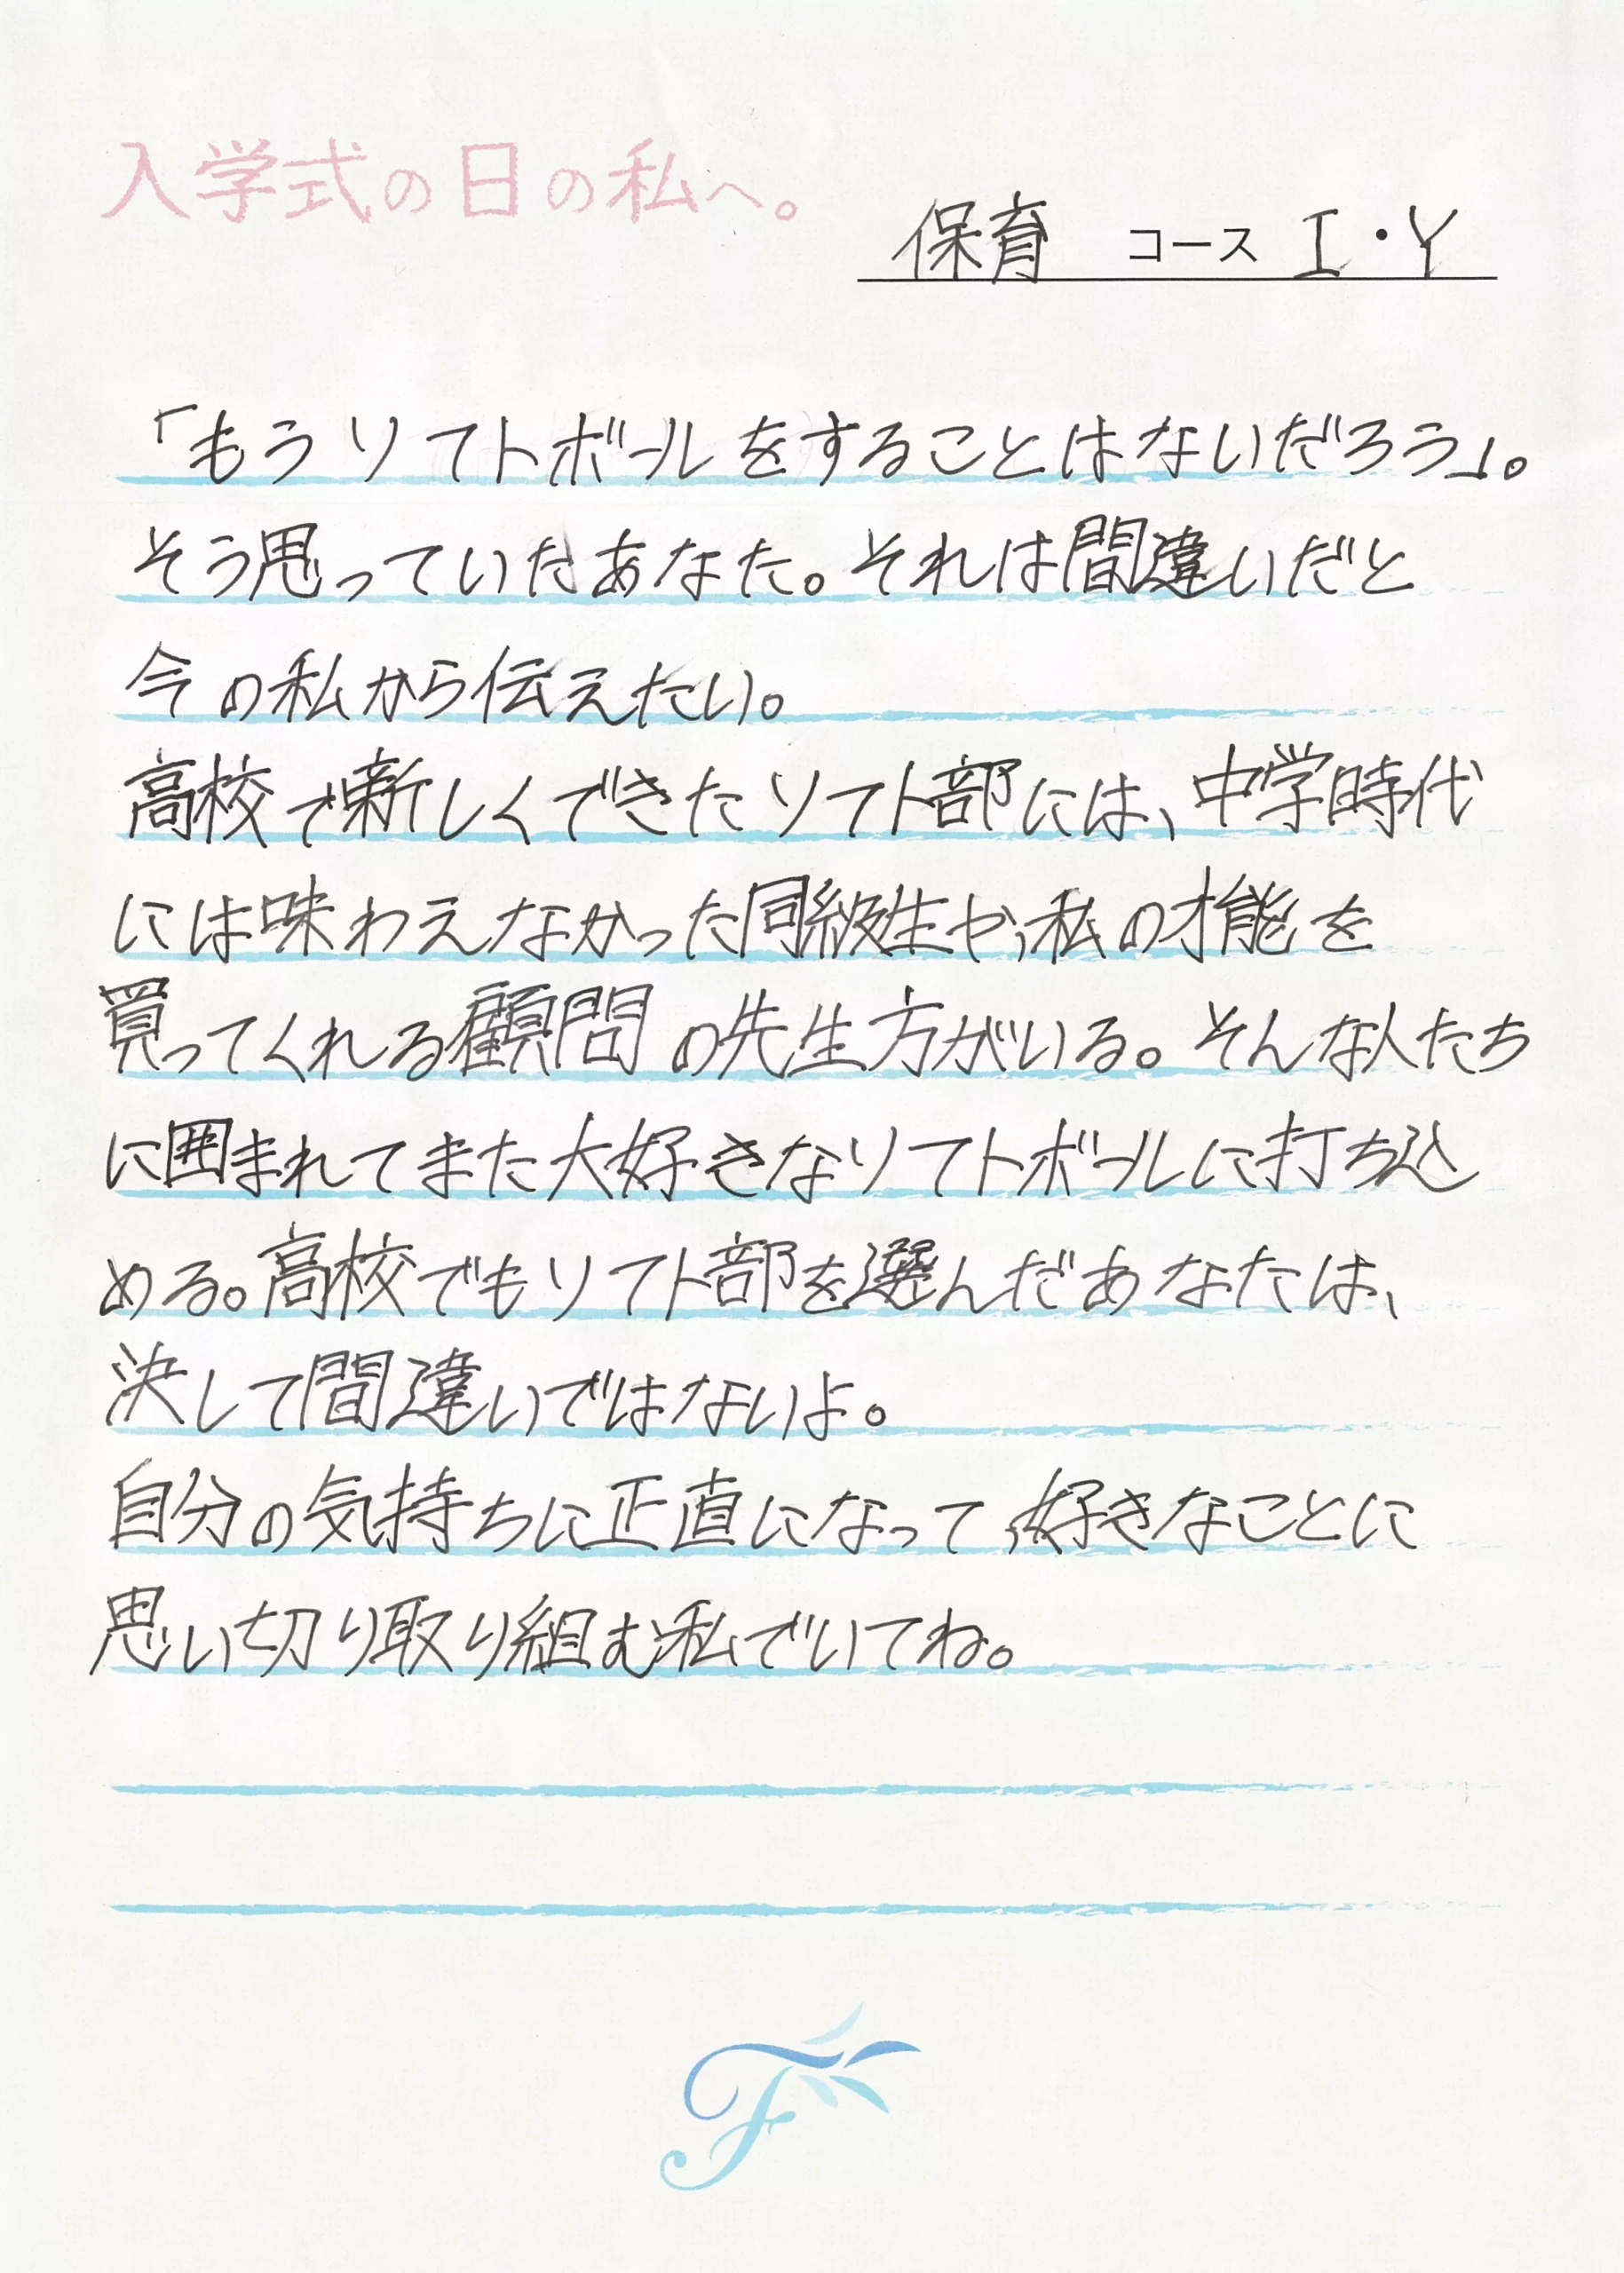 入学式の日の私へ。
保育 コース I・Y
「もうソフトボールをすることはないだろう」。
そう思っていたあなた。それは間違いだと
今の私から伝えたい。
高校で新しくできたソフト部には、中学時代
には味わえなかった同級生や、私の才能を
買ってくれる顧問の先生方がいる。そんな人たち
に囲まれてまた大好きなソフトボールに打ち込
める。高校でもソフト部を選んだあなたは、
決して間違いではないよ。
自分の気持ちに正直になって、好きなことに
思い切り取り組む私でいてね。
F